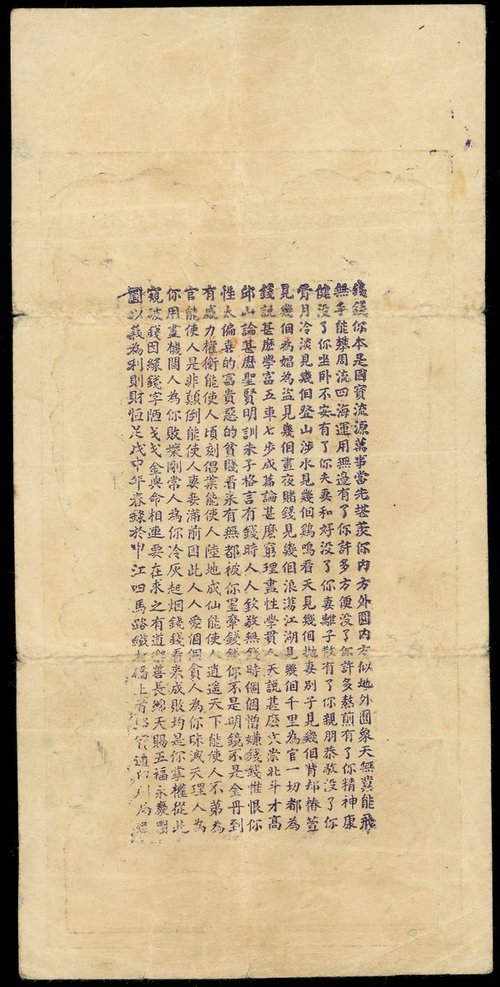 錢錢你本是國寶流源萬事當先堪羨你内方外圓内方似地外圓象天無糞能飛
無手能攀周流四海運用無邊有了你許多方便没了你許多熬煎有了你精神康
健没了你坐卧不安有了你夫妻和好没了你妻離子散有了你親朋恭敬没了你
骨月冷淡見幾個登山涉水見幾個鷄鳴看天見幾個抛妻别子見幾個背却椿萱
見幾個為娼為盗見幾個晝夜賭錢見幾個浪蕩江湖見幾個千里為官一切都為
錢説甚麽學富五車七步成篇論甚麽窮理盡性學貫人天説甚麽六崇北斗才高
邱山論甚麽聖賢明訓朱子格言有錢時人人欽敬無錢時個個憎嫌錢錢惟恨你
性太偏喜的富貴惡的貧賤看來有無都被你罣牽錢錢你不是明鏡不是金丹到
有威力權衡能使人頃刻倡業能使人陸地成仙能使人逍遥天下能使人不弟為
官能使人是非顛倒能使人妻妾滿前因此人人愛個個貪人為你昧滅天理人為
你用盡機關人為你敗柴剛常人為你冷灰起烟錢錢看來成敗均是你掌權從此
窺破錢因緣錢字陋戈戈金與命相連要在求之有道樂善長綿天賜五福永慶團
圓以義為利則財恒足戊申年春錄於申江四馬路 橋上首 印刷局